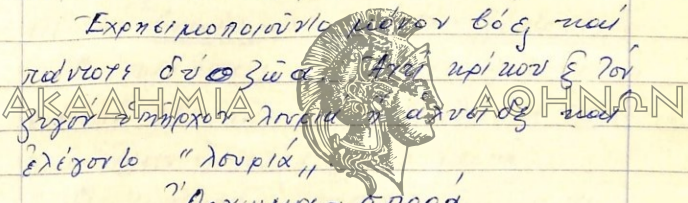 Ἐχρησιμοποιοῦντο μόνον βόες καί
πάντοτε δύο ζῶα. Ἀντί κρίκου ἐ τόν
ζυγόν ὑπῆρχον λουριά ἤ ἁλυσίδες καί
ἐλέγοντο "λουριά„
ΑΚΑΔΗΜΙΑ ΑΘΗΝΩΝ
σπορά